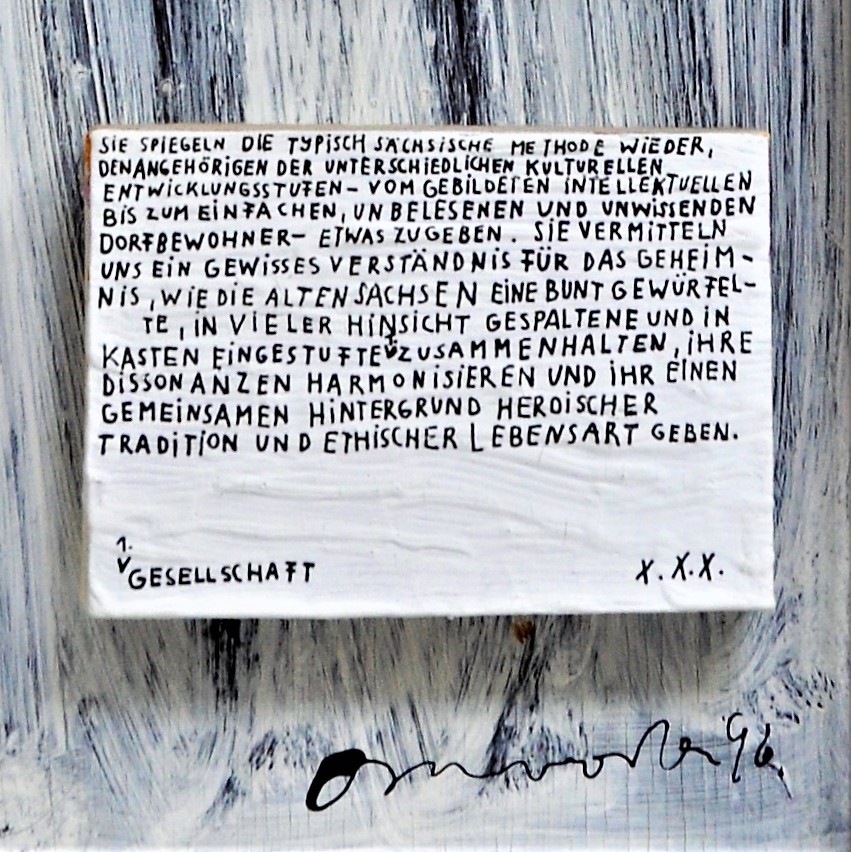 SIE SPIEGELN DIE TYPISCH SÄCHSISCHE METHODE WIEDER,
DENANGEHÖRIGEN DER UNTERSCHIEDLICHEN KULTURELLEN
ENTWICKLUNGSSTUFEN – VOM GEBILDETEN INTELLEKTUELLEN
BIS ZUM EINFACHEN, UNBELESENEN UND UNWISSENDEN
DORFBEWOHNER – ETWAS ZUGEBEN. SIE VERMITTELN
UNS EIN GEWISSES VERSTÄNDNIS FÜR DAS GEHEIM-
NIS, WIE DIE ALTEN SACHSEN EINE BUNT GEWÜRFEL-
TE, IN VIELER HINSICHT GESPALTENE UND IN
KASTEN EINGESTUFTE 1.V ZUSAMMENHALTEN, IHRE
DISSONANZEN HARMONISIEREN UND IHR EINEN
GEMEINSAMEN HINTERGRUND HEROISCHER
TRADITION UND ETHISCHER LEBENSART GEBEN.
1.V GESELLSCHAFT X.X.X.
96